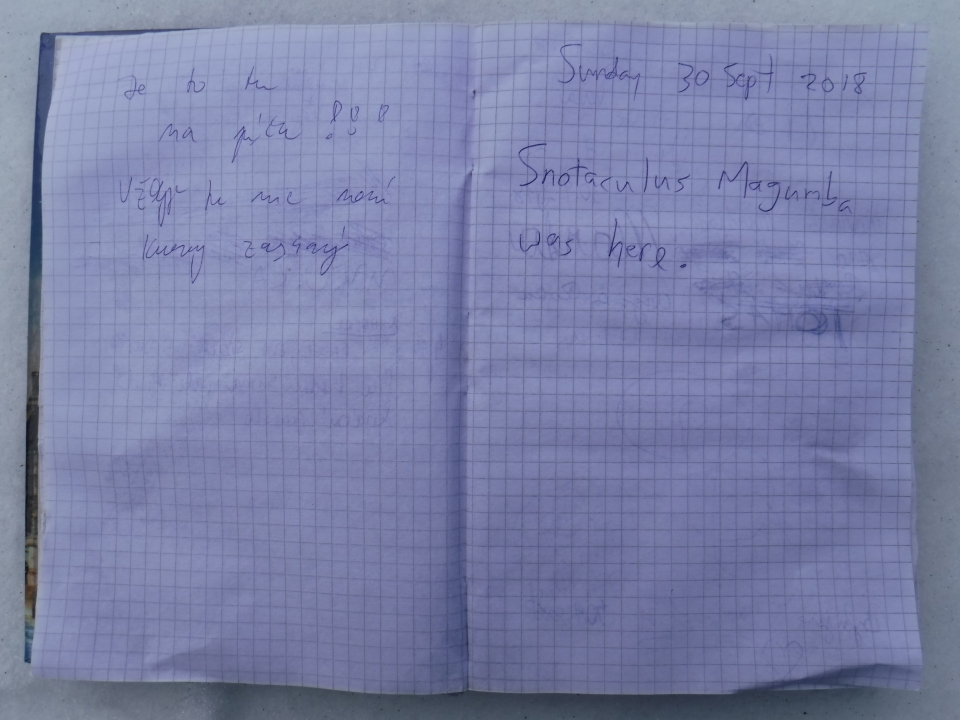 Je to tu
na píču !!!
Vždyť tu nic není
kurvy zasraný
Sunday 30 Sept 2018
Snotaculus Magumba
was here.